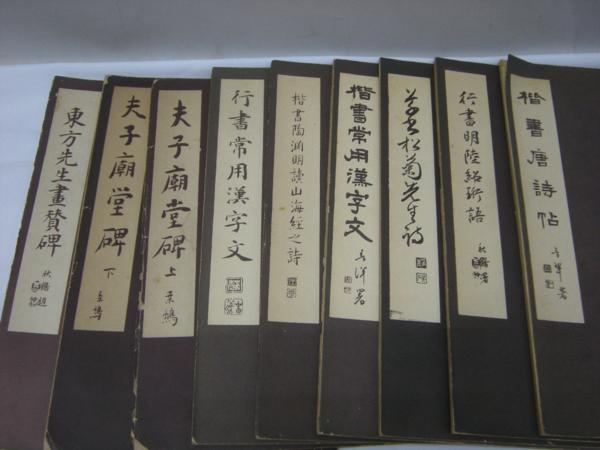 東方先生畫贊碑
夫子廟堂碑
下
夫子廟堂碑
上
行書常用漢字文
楷書陶淵明讀山海經之詩
楷書常用漢字文
松菊先生詩
行書明陸紹珩語
楷書唐詩帖